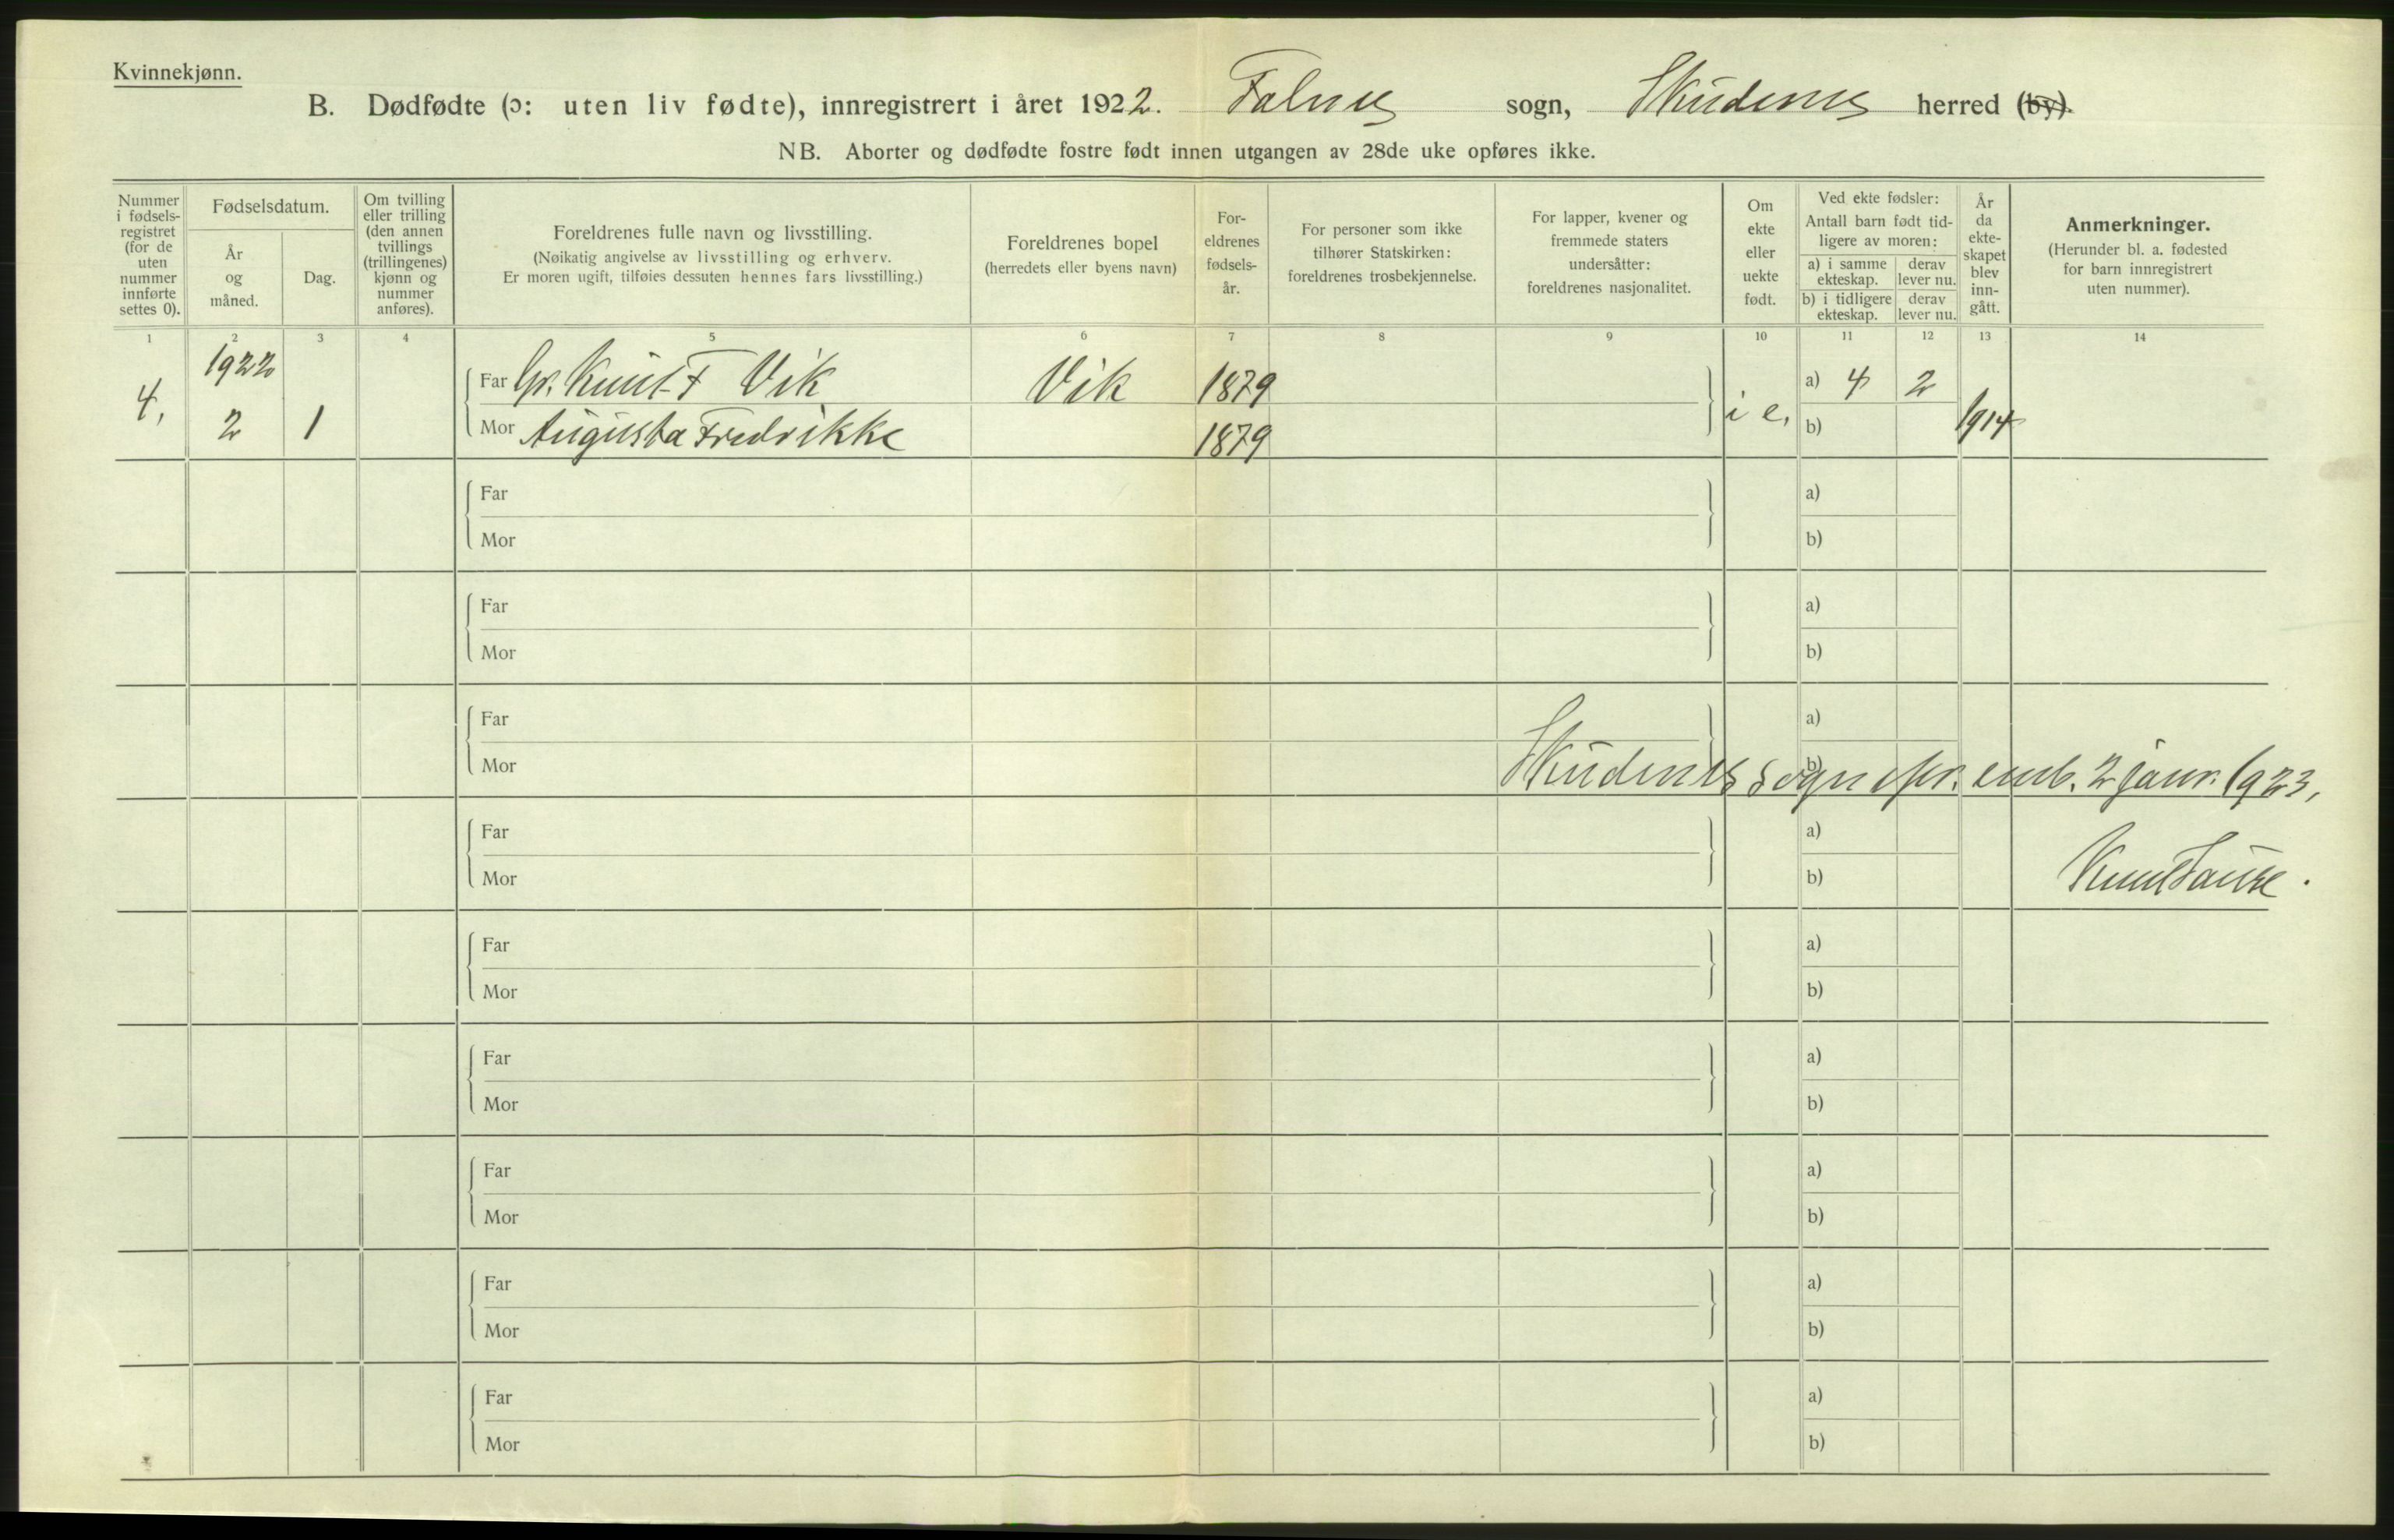 Kvinnekjønn.
B. Dødfødte (ɔ: uten liv fødte), innregistrert i året 1922. Falnes sogn, Skudenes herred (by).
NB. Aborter og dødfødte fostre født innen utgangen av 28de uke opføres ikke.
Nummer i fødsels-registret (for de uten nummer innførte settes 0).
Fødselsdatum.
År og måned.
Dag.
Om tvilling eller trilling (den annen tvillings (trillingenes) kjønn og nummer anføres).
Foreldrenes fulle navn og livsstilling.
(Nøikatig angivelse av livsstilling og erhverv.
Er moren ugift, tilføies dessuten hennes fars livsstilling.)
Foreldrenes bopel
(herredets eller byens navn)
For-eldrenes fødsels-år.
For personer som ikke tilhører Statskirken: foreldrenes trosbekjennelse.
For lapper, kvener og fremmede staters undersåtter: foreldrenes nasjonalitet.
Om ekte eller uekte født.
Ved ekte fødsler:
Antall barn født tid-ligere av moren:
a) i samme ekteskap.
derav lever nu.
b) i tidligere ekteskap.
derav lever nu.
År da ekte-skapet blev inn-gått.
Anmerkninger.
(Herunder bl. a. fødested for barn innregistrert uten nummer).
1 2 3 4 5 6 7 8 9 10 11 12 13 14
1922
4, 2 1
Far Gr. Knut F Vik Vik 1879 i e. a) 4 2
Mor Augusta Fredrikke 1879 b) 1914
Far a)
Mor b)
Far a)
Mor b)
Far a)
Mor b)
Skudenes sognepr. emb. 2 janr. 1923,
Far a)
Mor b)
Knut
Far a)
Mor b)
Far a)
Mor b)
Far a)
Mor b)
Far a)
Mor b)
Far a)
Mor b)